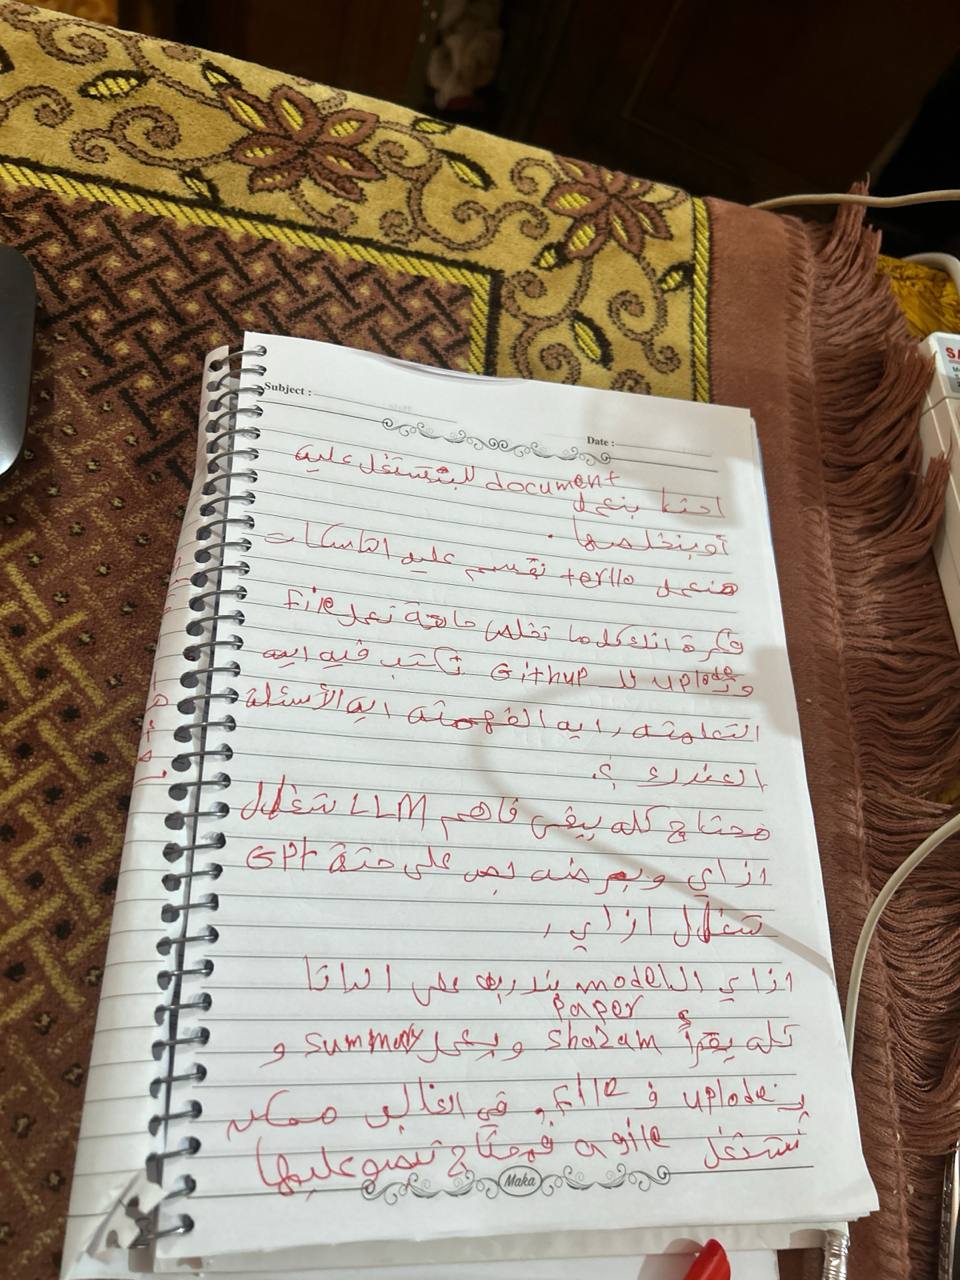 Subject :
Date :
احنا بنعمل document للبنشتغل عليه
أو بنخلصها .
هنعمل terllo نقسم عليه التاسكات
فكرة انك كلما تخلص حاجة تعمل File
و uplode لل Githup تكتب فيه ايه
التعلمته, ايه الفهمته ايه الأسئلة
العندك ؟
محتاج كله يبقى فاهم LLM شغال
ازاي وبعرضه نبص على حتة GPt
شغال ازاي ,
ازاي الmodel بندربه على الداتا
كله يقرأ paper shazam ويعمل summary و
يـ uplode ف File, في الغالب ممكن
نشتغل agile فمحتاج نبصو عليها
Maka
SA